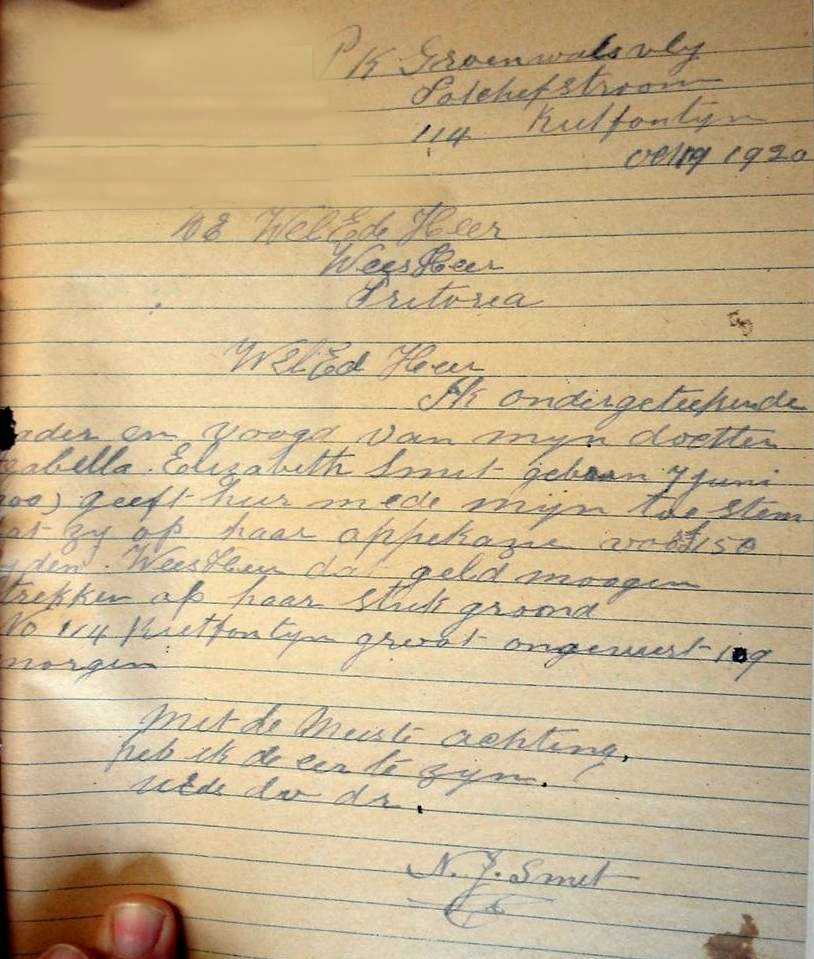 PK Groenwalsvly
Potchefstroom
114 Rietfontyn
Oct 19 1920
WelEde Heer
WeesHeer
Pritoria
WelEd Heer
Ik ondergeteekende
ader en voogd van mijn dochter
abella Elizabeth Smit geboren 7 Juni
geeft hier mede mijn toestem
at zy op haar appekazie voor £150
yden WeesHeer dat geld moogen
trekken op haar stuk groond
No 114 Rietfontyn groot ongeveer 109
morgen
Met de Meeste achting,
heb ik de eer te zyn.
UEde dw dr.
N. J. Smit